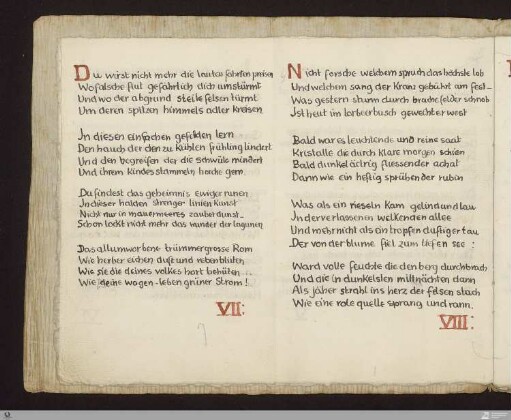 Du wirst nicht mehr die lauten fahrten preisen
Wo falsche flut gefährlich dich umstürmt
Und wo der abgrund steile felsen türmt
Um deren spitzen himmels adler kreisen
In diesen einfachen gefilden lern
Den hauch der den zu kühlen frühling lindert
Und den begreifen der die schwüle mindert
Und ihrem kindesstammeln horche gern
Du findest das geheimnis ewiger runen
In dieser halden strenger linienkunst
Nicht nur in mauermeeres zauberdunst
Schon lockt nicht mehr das wunder der lagunen
Das allumworbene trümmergrosse Rom
Wie herber eichen duft und rebenblüten
Wie sie die deines volkes hort behüten ..
Wie deine wogen - lebengrüner Strom!
VII:
Nicht forsche welchem spruch das höchste lob
Und welchem sang der kranz gebührt am fest_
Was gestern sturm durch brache felder schnob
Ist heut im lorbeerbusch geweihter west
Bald war es leuchtende und reine saat
Kristalle die durch klare morgen schien
Bald dunkelädrig fliessender achat
Dann wie ein heftig sprühender rubin
Was als ein rieseln kam gelind und lau
In der verlassenen welkenden allee
Und mehr nicht als ein tropfen duftiger tau
Der von der blume fiel zum tiefen see :
Ward volle feuchte die den berg durchbrach
Und die in dunkelsten mittnächten dann
Als jäher strahl ins herz der felsen stach
Wie eine rote quelle sprang und rann.
VIII: